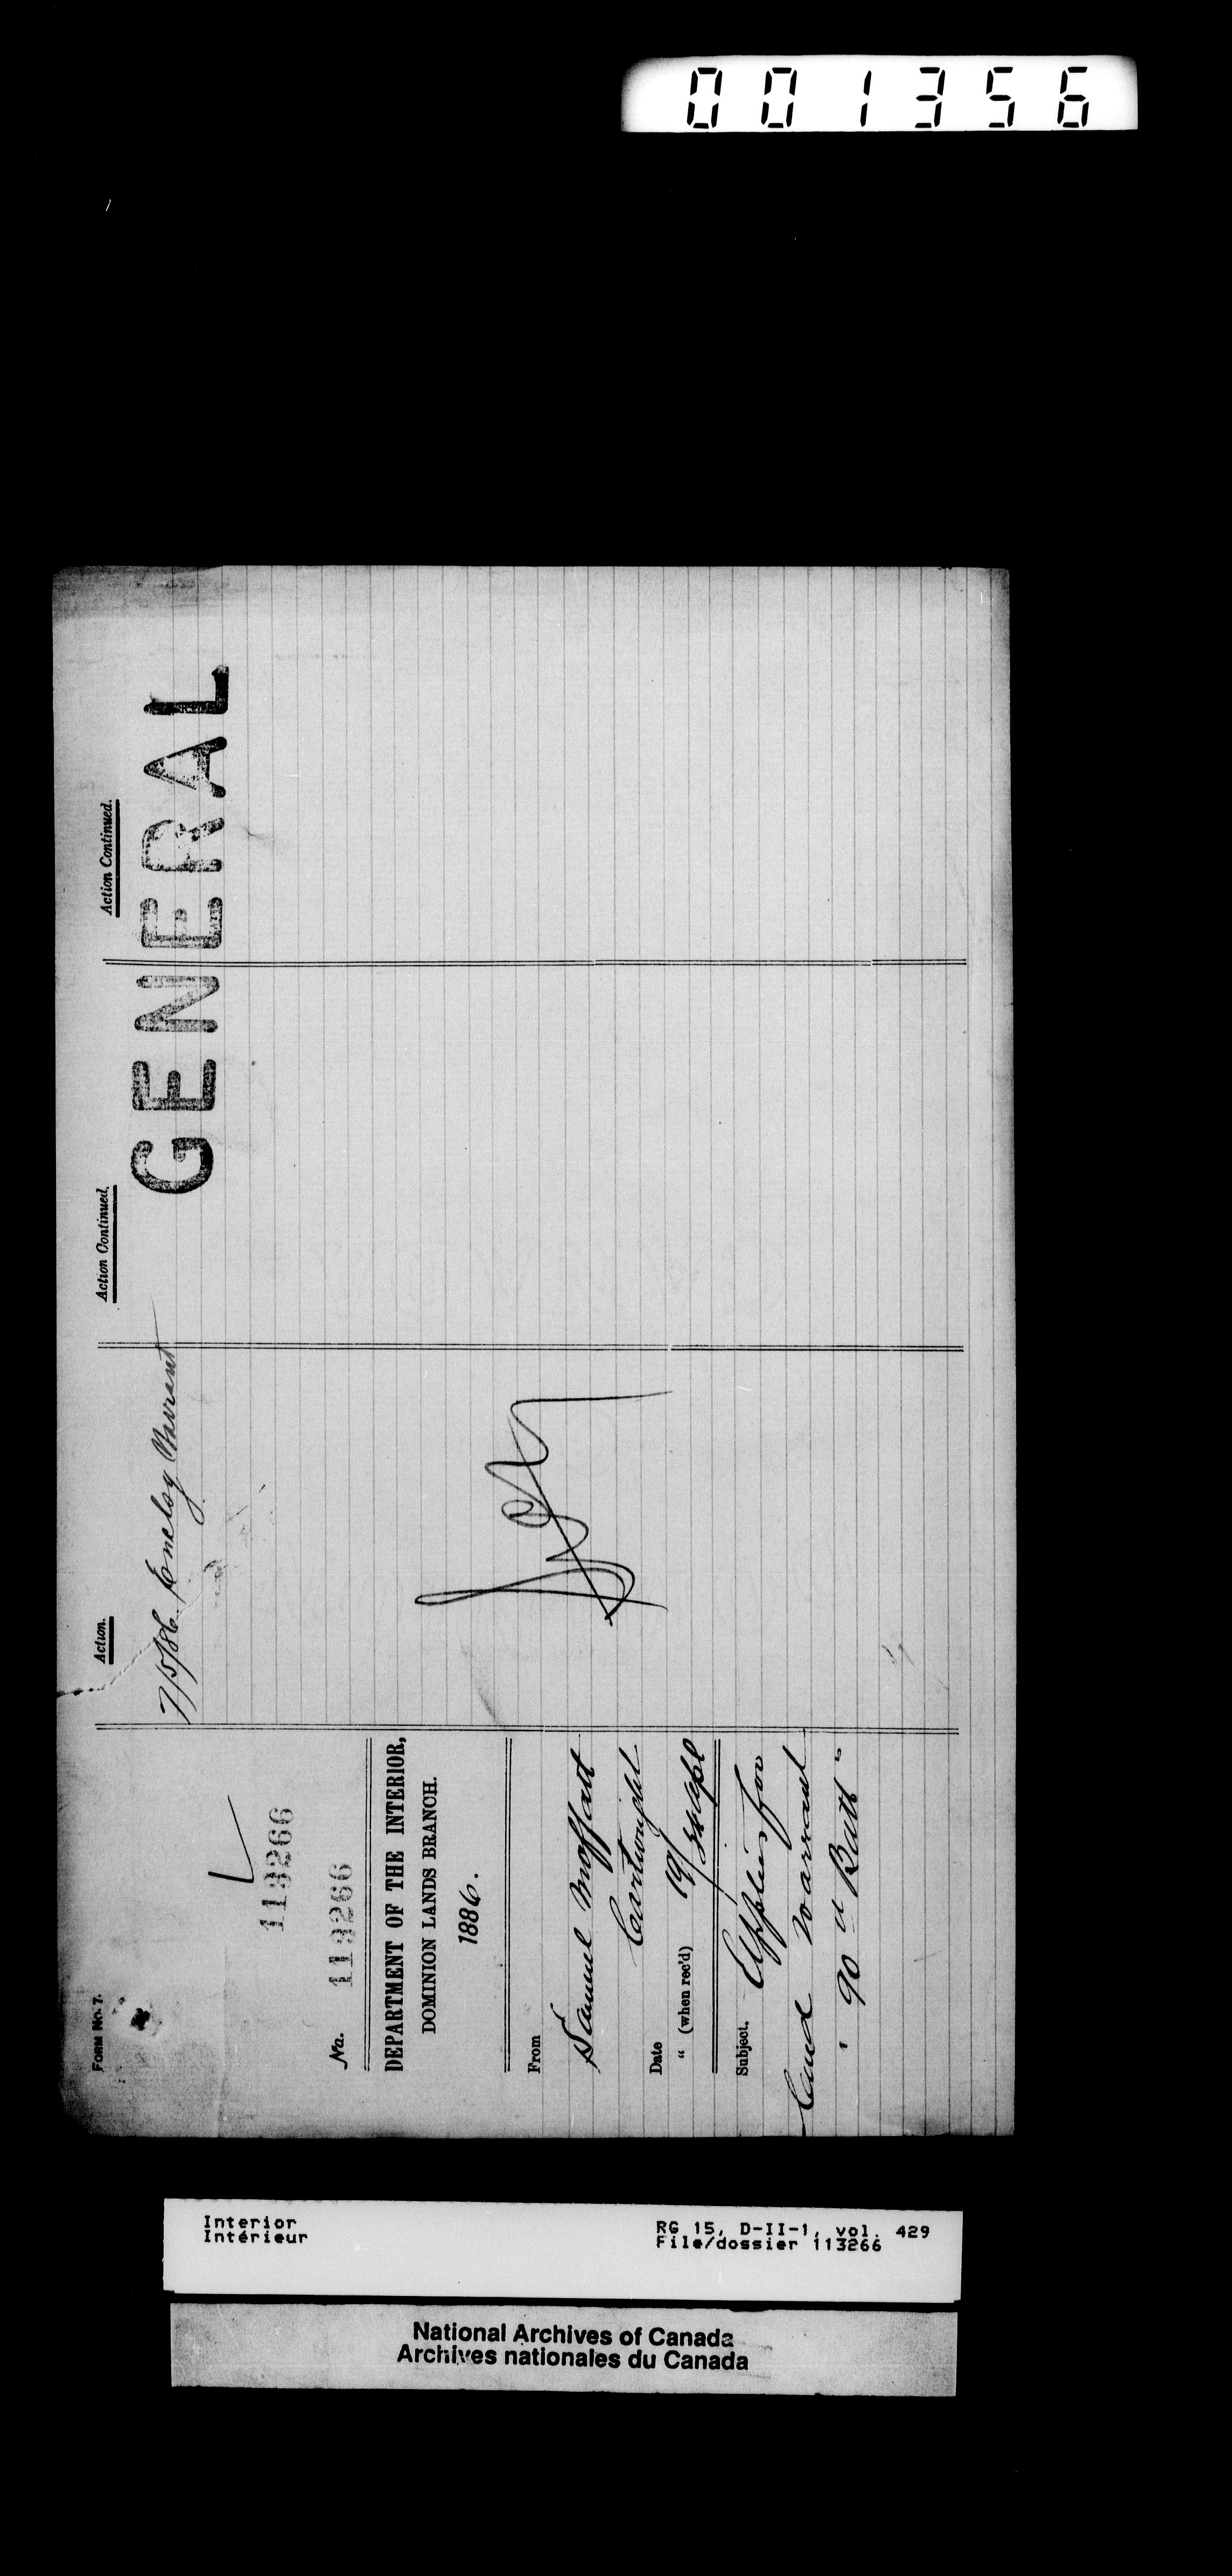 001356
FORM No. 7.
113266
No. 113266
DEPARTMENT OF THE INTERIOR,
DOMINION LANDS BRANCH.
1886.
From
Samuel Moffatt
Cartwright
Date 19/
" (when rec'd)
Subject. Applies for
land warrant
90th Batt
Action.
7/5/86 Enclos Warrant
Action Continued.
Action Continued.
GENERAL
Interior
Intérieur
RG 15, D-II-1, vol. 429
File/dossier 113266
National Archives of Canada
Archives nationales du Canada